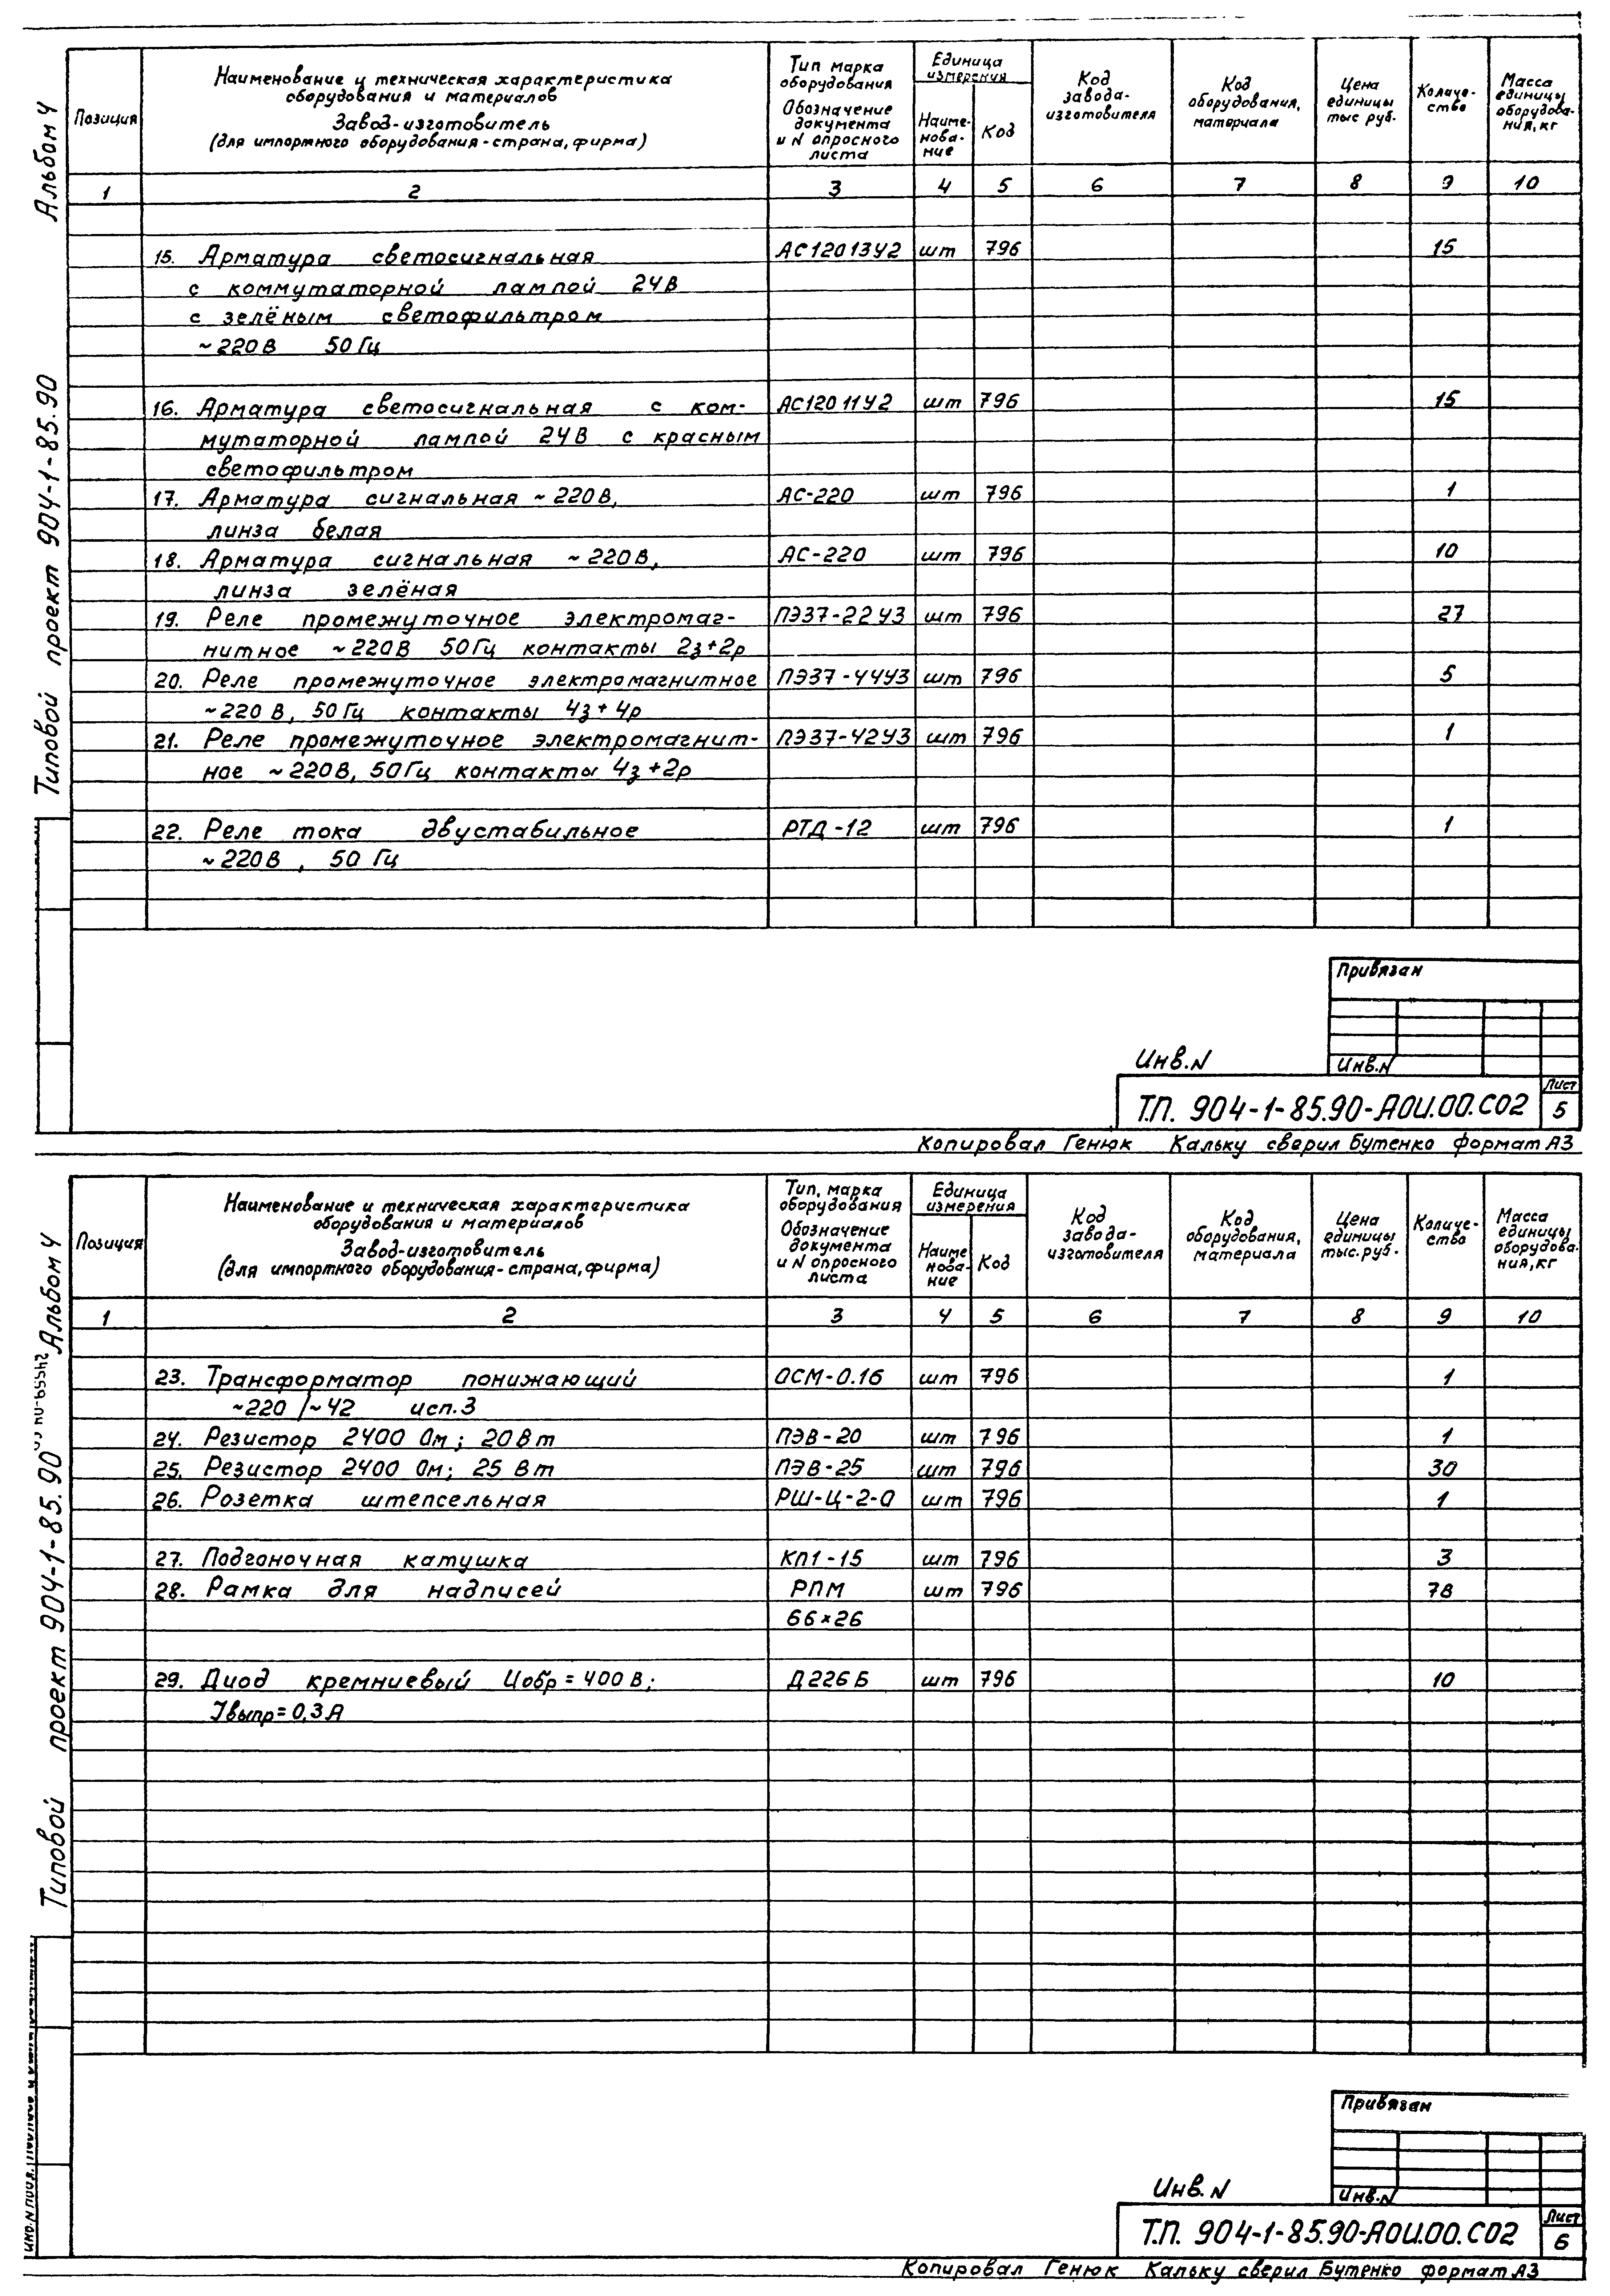 Альбом 4
Типовой проект 904-1-85.90
Позиция
Наименование и техническая характеристика
оборудования и материалов
Завод-изготовитель
(для импортного оборудования-страна, фирма)
Тип марка
оборудования
Обозначение
документа
и N опросного
листа
Единица
измерения
Наиме-
нова-
ние
Код
Код
завода-
изготовителя
Код
оборудования,
материала
Цена
единицы
тыс руб.
Количе-
ство
Масса
единицы
оборудова-
ния, кг
1 2 3 4 5 6 7 8 9 10
15. Арматура светосигнальная АС12013У2 шт 796 15
с коммутаторной лампой 24В
с зелёным светофильтром
~220В 50Гц
16. Арматура светосигнальная с ком- АС12011У2 шт 796 15
мутаторной лампой 24В с красным
светофильтром
17. Арматура сигнальная ~220В, АС-220 шт 796 1
линза белая
18. Арматура сигнальная ~220В, АС-220 шт 796 10
линза зелёная
19. Реле промежуточное электромаг- ПЭ37-22У3 шт 796 27
нитное ~220В 50Гц контакты 2з+2р
20. Реле промежуточное электромагнитное ПЭ37-44У3 шт 796 5
~220В, 50Гц контакты 4з+4р
21. Реле промежуточное электромагнит- ПЭ37-42У3 шт 796 1
ное ~220В, 50Гц контакты 4з+2р
22. Реле тока двустабильное РТД-12 шт 796 1
~220В, 50Гц
Привязан
Инв.N
Инв.N
Т.П. 904-1-85.90-АОИ.00.СО2
Лист
5
Копировал Генюк Кальку сверил Бутенко формат А3
Альбом 4
Типовой проект 904-1-85.90
Позиция
Наименование и техническая характеристика
оборудования и материалов
Завод-изготовитель
(для импортного оборудования-страна, фирма)
Тип, марка
оборудования
Обозначение
документа
и N опросного
листа
Единица
измерения
Наиме
нова-
ние
Код
Код
завода-
изготовителя
Код
оборудования,
материала
Цена
единицы
тыс. руб.
Количе-
ство
Масса
единицы
оборудова-
ния, кг
1 2 3 4 5 6 7 8 9 10
23. Трансформатор понижающий ОСМ-0.16 шт 796 1
~220/~42 исп.3
24. Резистор 2400 Ом; 20Вт ПЭВ-20 шт 796 1
25. Резистор 2400 Ом; 25 Вт ПЭВ-25 шт 796 30
26. Розетка штепсельная РШ-Ц-2-0 шт 796 1
27. Подгоночная катушка КП1-15 шт 796 3
28. Рамка для надписей РПМ шт 796 78
66×26
29. Диод кремниевый Uобр=400В; Д226Б шт 796 10
Iвыпр=0,3А
Привязан
Инв.N
Инв.N
Т.П. 904-1-85.90-АОИ.00.СО2
Лист
6
Копировал Генюк Кальку сверил Бутенко формат А3